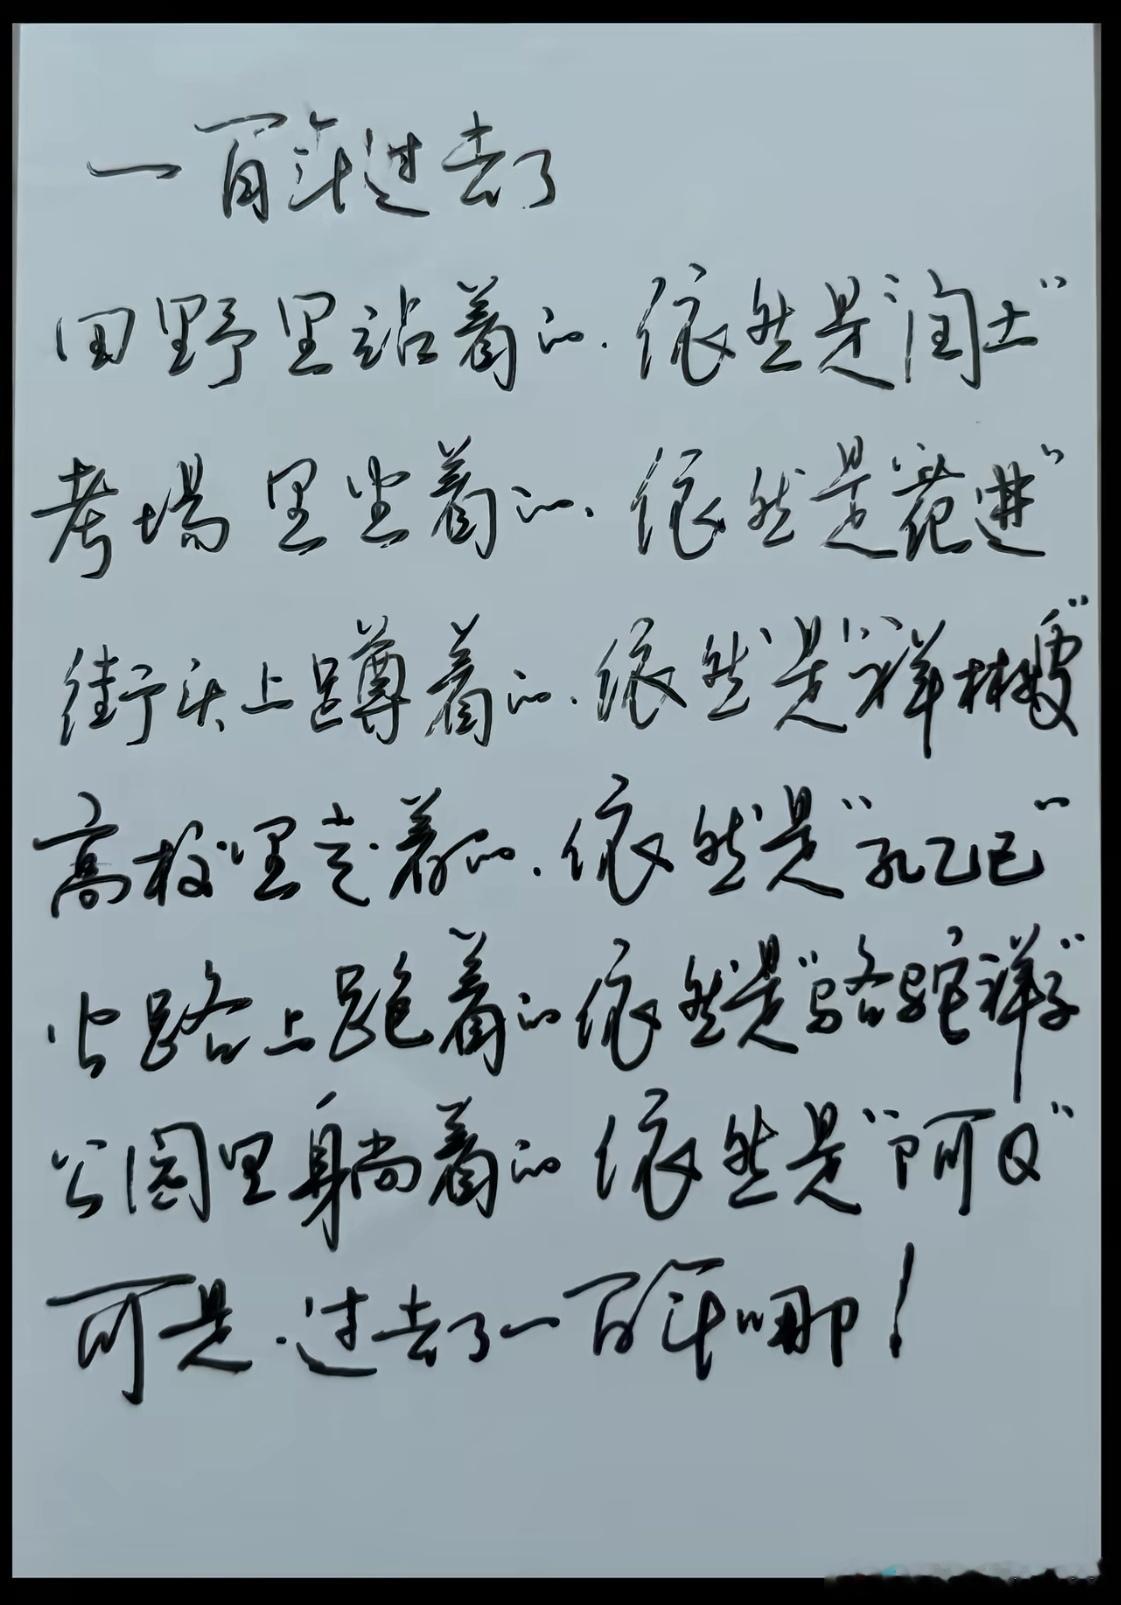 一百年过去了
田野里站着的.依然是"闰土"
考场里坐着的.依然是"范进"
街头上蹲着的.依然是"祥林嫂"
高校里走着的.依然是"孔乙己"
公路上跑着的依然是"骆驼祥子"
公园里躺着的依然是"阿Q"
可是.过去了一百年哪!